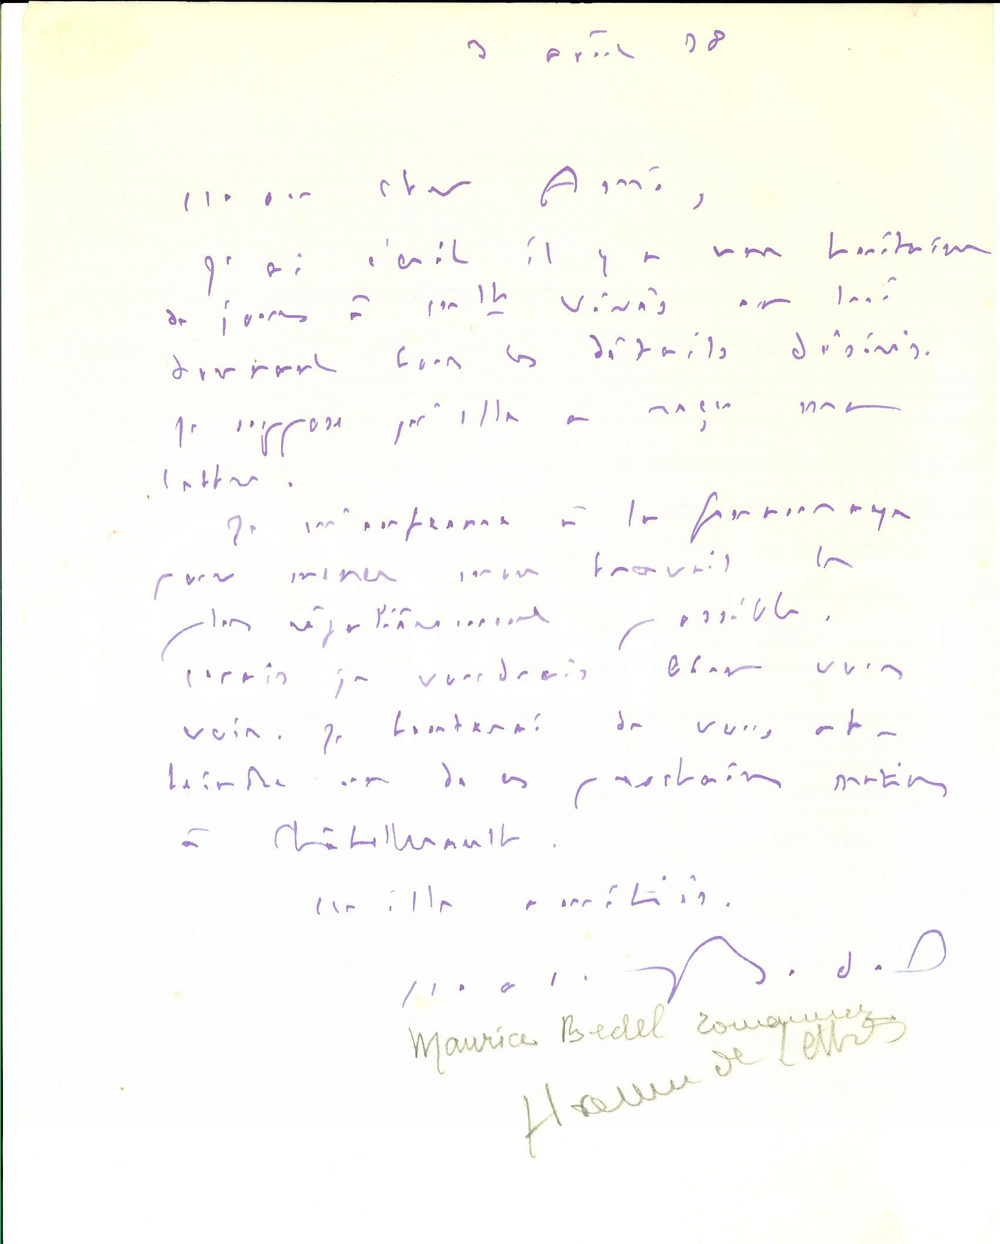 3 avril 38
Mon cher Aimé,
J'ai écrit il y a une huitaine
de jours à Melle Vivès en lui
donnant tous les détails désirés.
Je suppose qu'elle a reçu ma
lettre.
Je m'enferme à la
pour mener mon travail le
plus régulièrement possible.
mais je voudrais bien vous
voir. Je tenterai de vous at-
teindre un de ces prochains matins
à Châtellerault.
mille amitiés.
Maurice Bedel romancier
Homme de Lettres